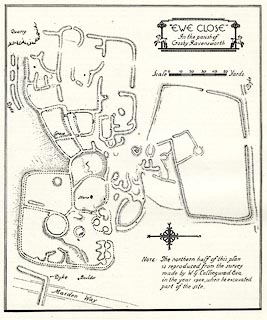 "EWE CLOSE"
In the parish of
Crosby Ravensworth
Quarry
Scale
Yards
Dyke
Note: The northern half of this plan
is reproduced from the survey
made by W.G. Collingwood Esq.
in the year 1908, when he excavated
part of the site.
Dyke
Maiden Way